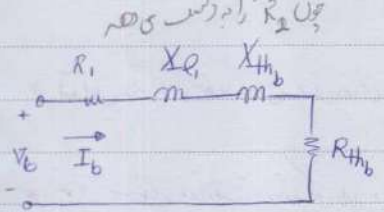 چون R₂ را به دست می دهد
R₁ Xℓ₁ X_th_b
+
V_b I_b R_th_b
-